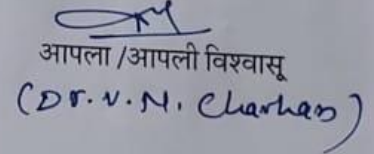 आपला /आपली विश्वासू
(Dr. V. N. Charhan)